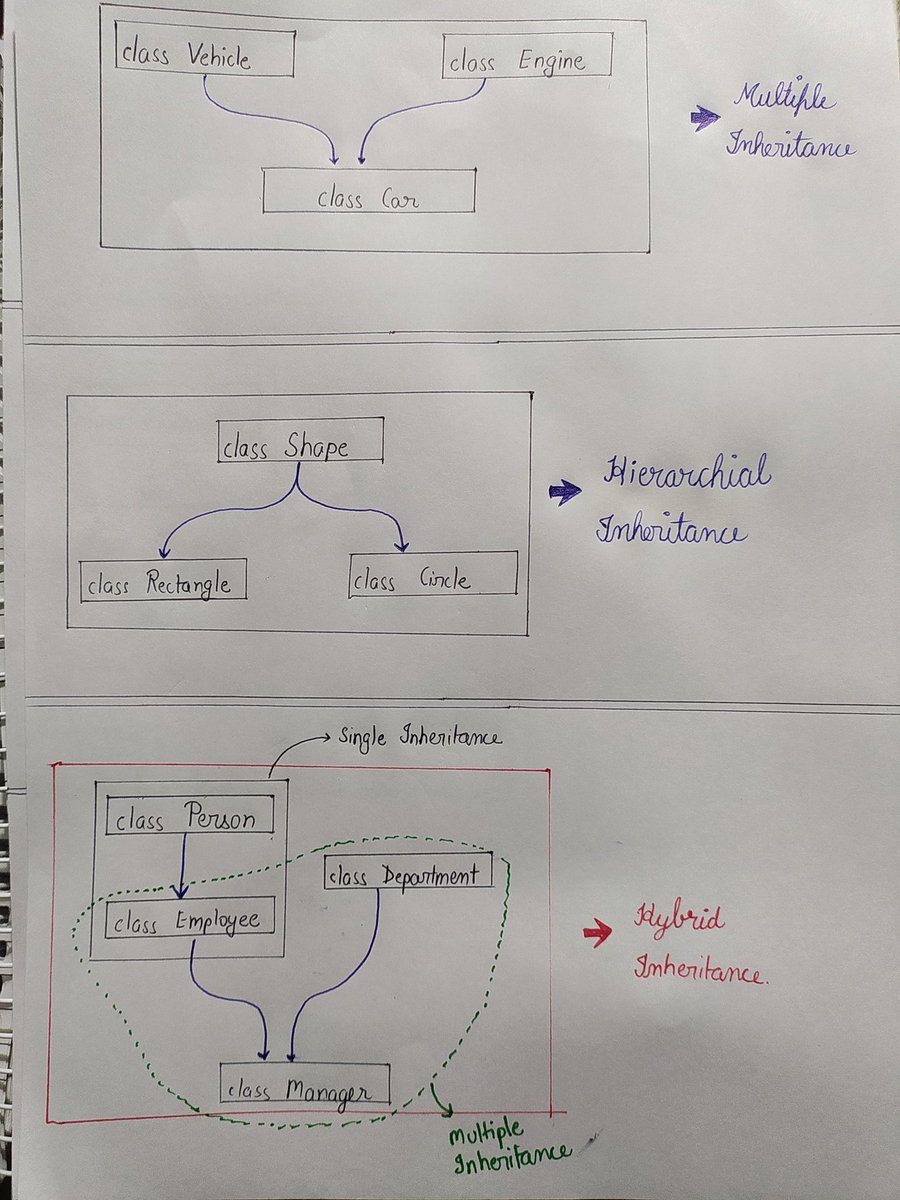 class Vehicle
class Engine
class Car
Multiple
Inheritance
class Shape
class Rectangle
class Circle
Hierarchial
Inheritance
Single Inheritance
class Person
class Department
class Employee
class Manager
Hybrid
Inheritance.
Multiple
Inheritance